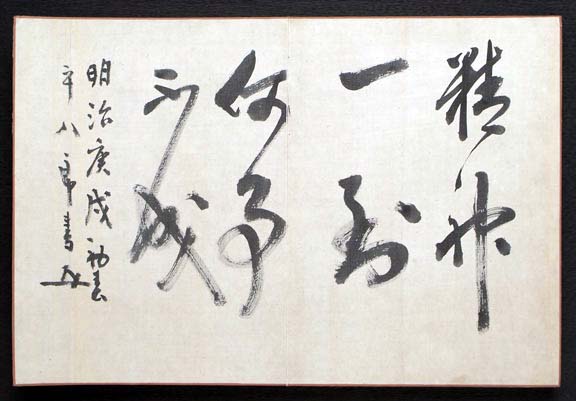 精神
一到
何事
不成
明治庚戌初春
平八郎書